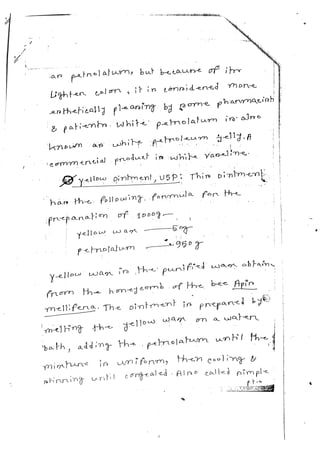 an petrolatum, but because of its
lighten color, it is considered more
esthetically pleasing by some pharmacists
& patients. White petrolatum is also
known as white petroleum jelly. A
commercial product is white vaseline.
yellow Ointment, USP: This ointment
has the following formula for the
preparation of 1000g
yellow wax — 50g
petrolatum — 950g
yellow wax is the purified wax obtain
from the honeycomb of the bee Apis
mellifera. The ointment is prepared by
melting the yellow wax on a water
bath, adding the petrolatum until the
mixture is uniform, then cooling &
stirring until congealed. Also called simple